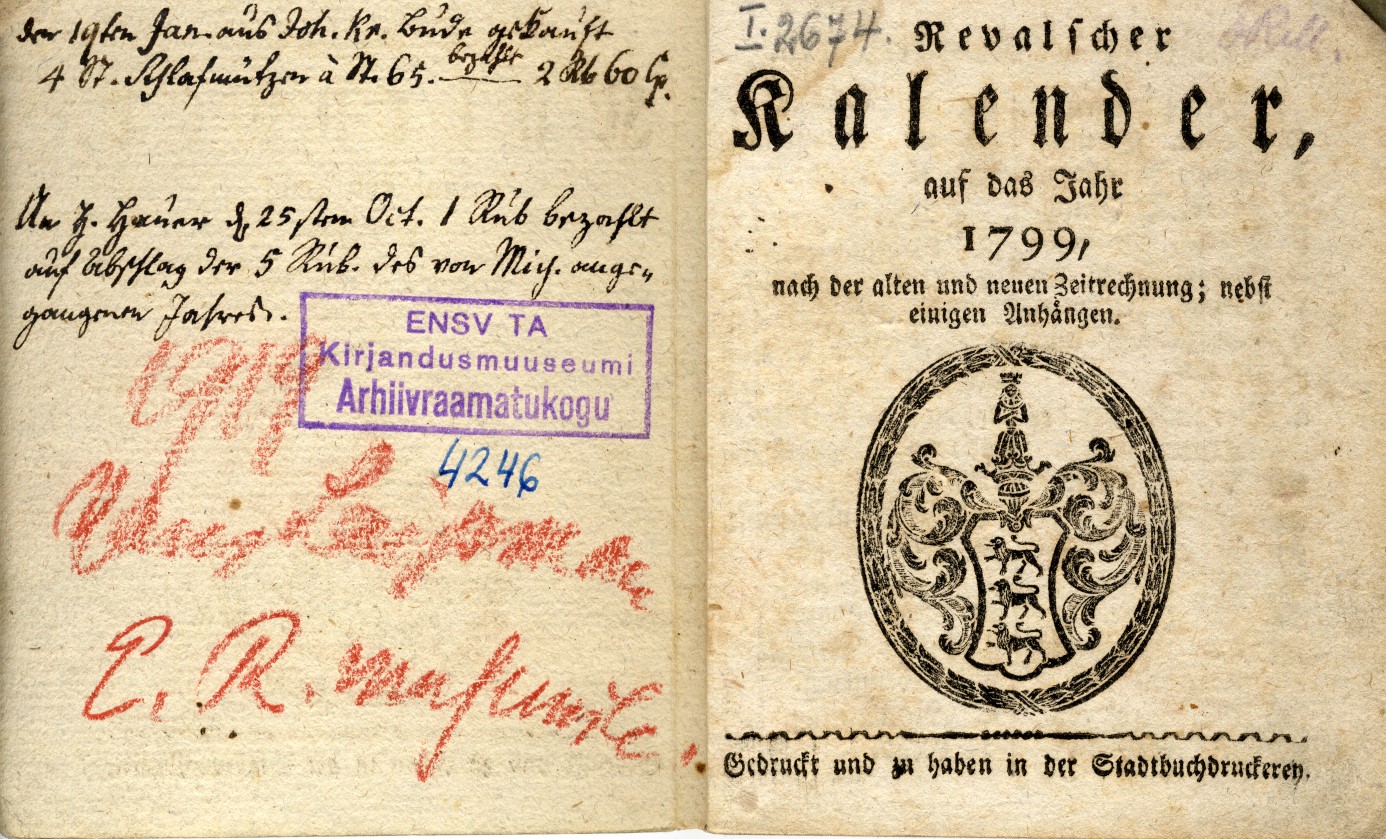 den 19ten Jan. aus Joh. Kr. Bude gekauft
4 St. Schlafmützen à St. 65. bezahlt 2 Rb 60 Cp.
An H. Hauer d. 25sten Oct. 1 Rub bezahlt
auf Abschlag der 5 Rub. des von Mich. ange-
gangenen Jahres.
ENSV TA
Kirjandusmuuseumi
Arhiivraamatukogu
1919
4246
E. R. museumile.
I. 2674.
Revalscher
Kalender,
auf das Jahr
1799,
nach der alten und neuen Zeitrechnung; nebst
einigen Anhängen.
Gedruckt und zu haben in der Stadtbuchdruckerey.